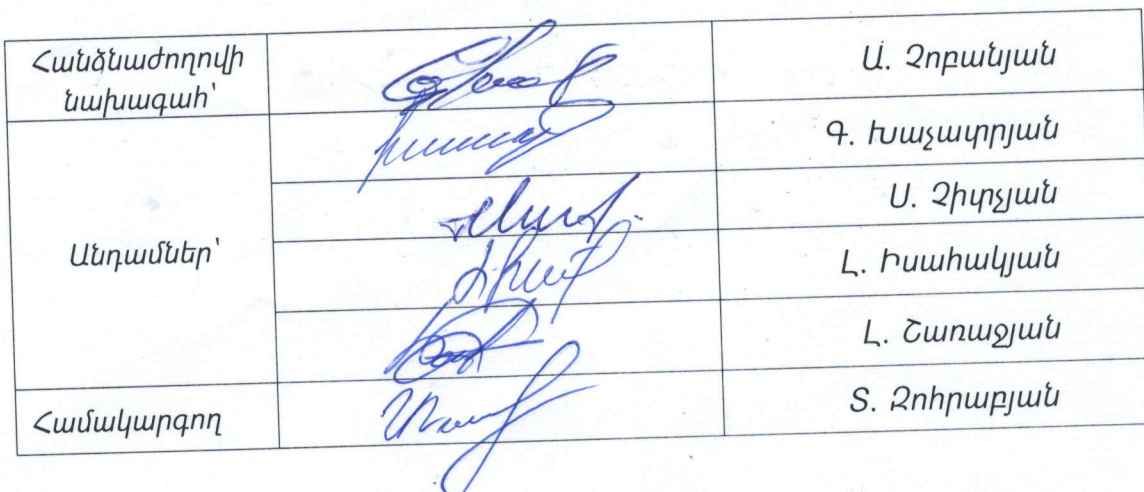 Հանձնաժողովի
նախագահ՝
Ա. Չոբանյան
Գ. Խաչատրյան
Ս. Չիտչյան
Անդամներ՝
Լ. Իսահակյան
Լ. Շառաջյան
Համակարգող
Տ. Զոհրաբյան